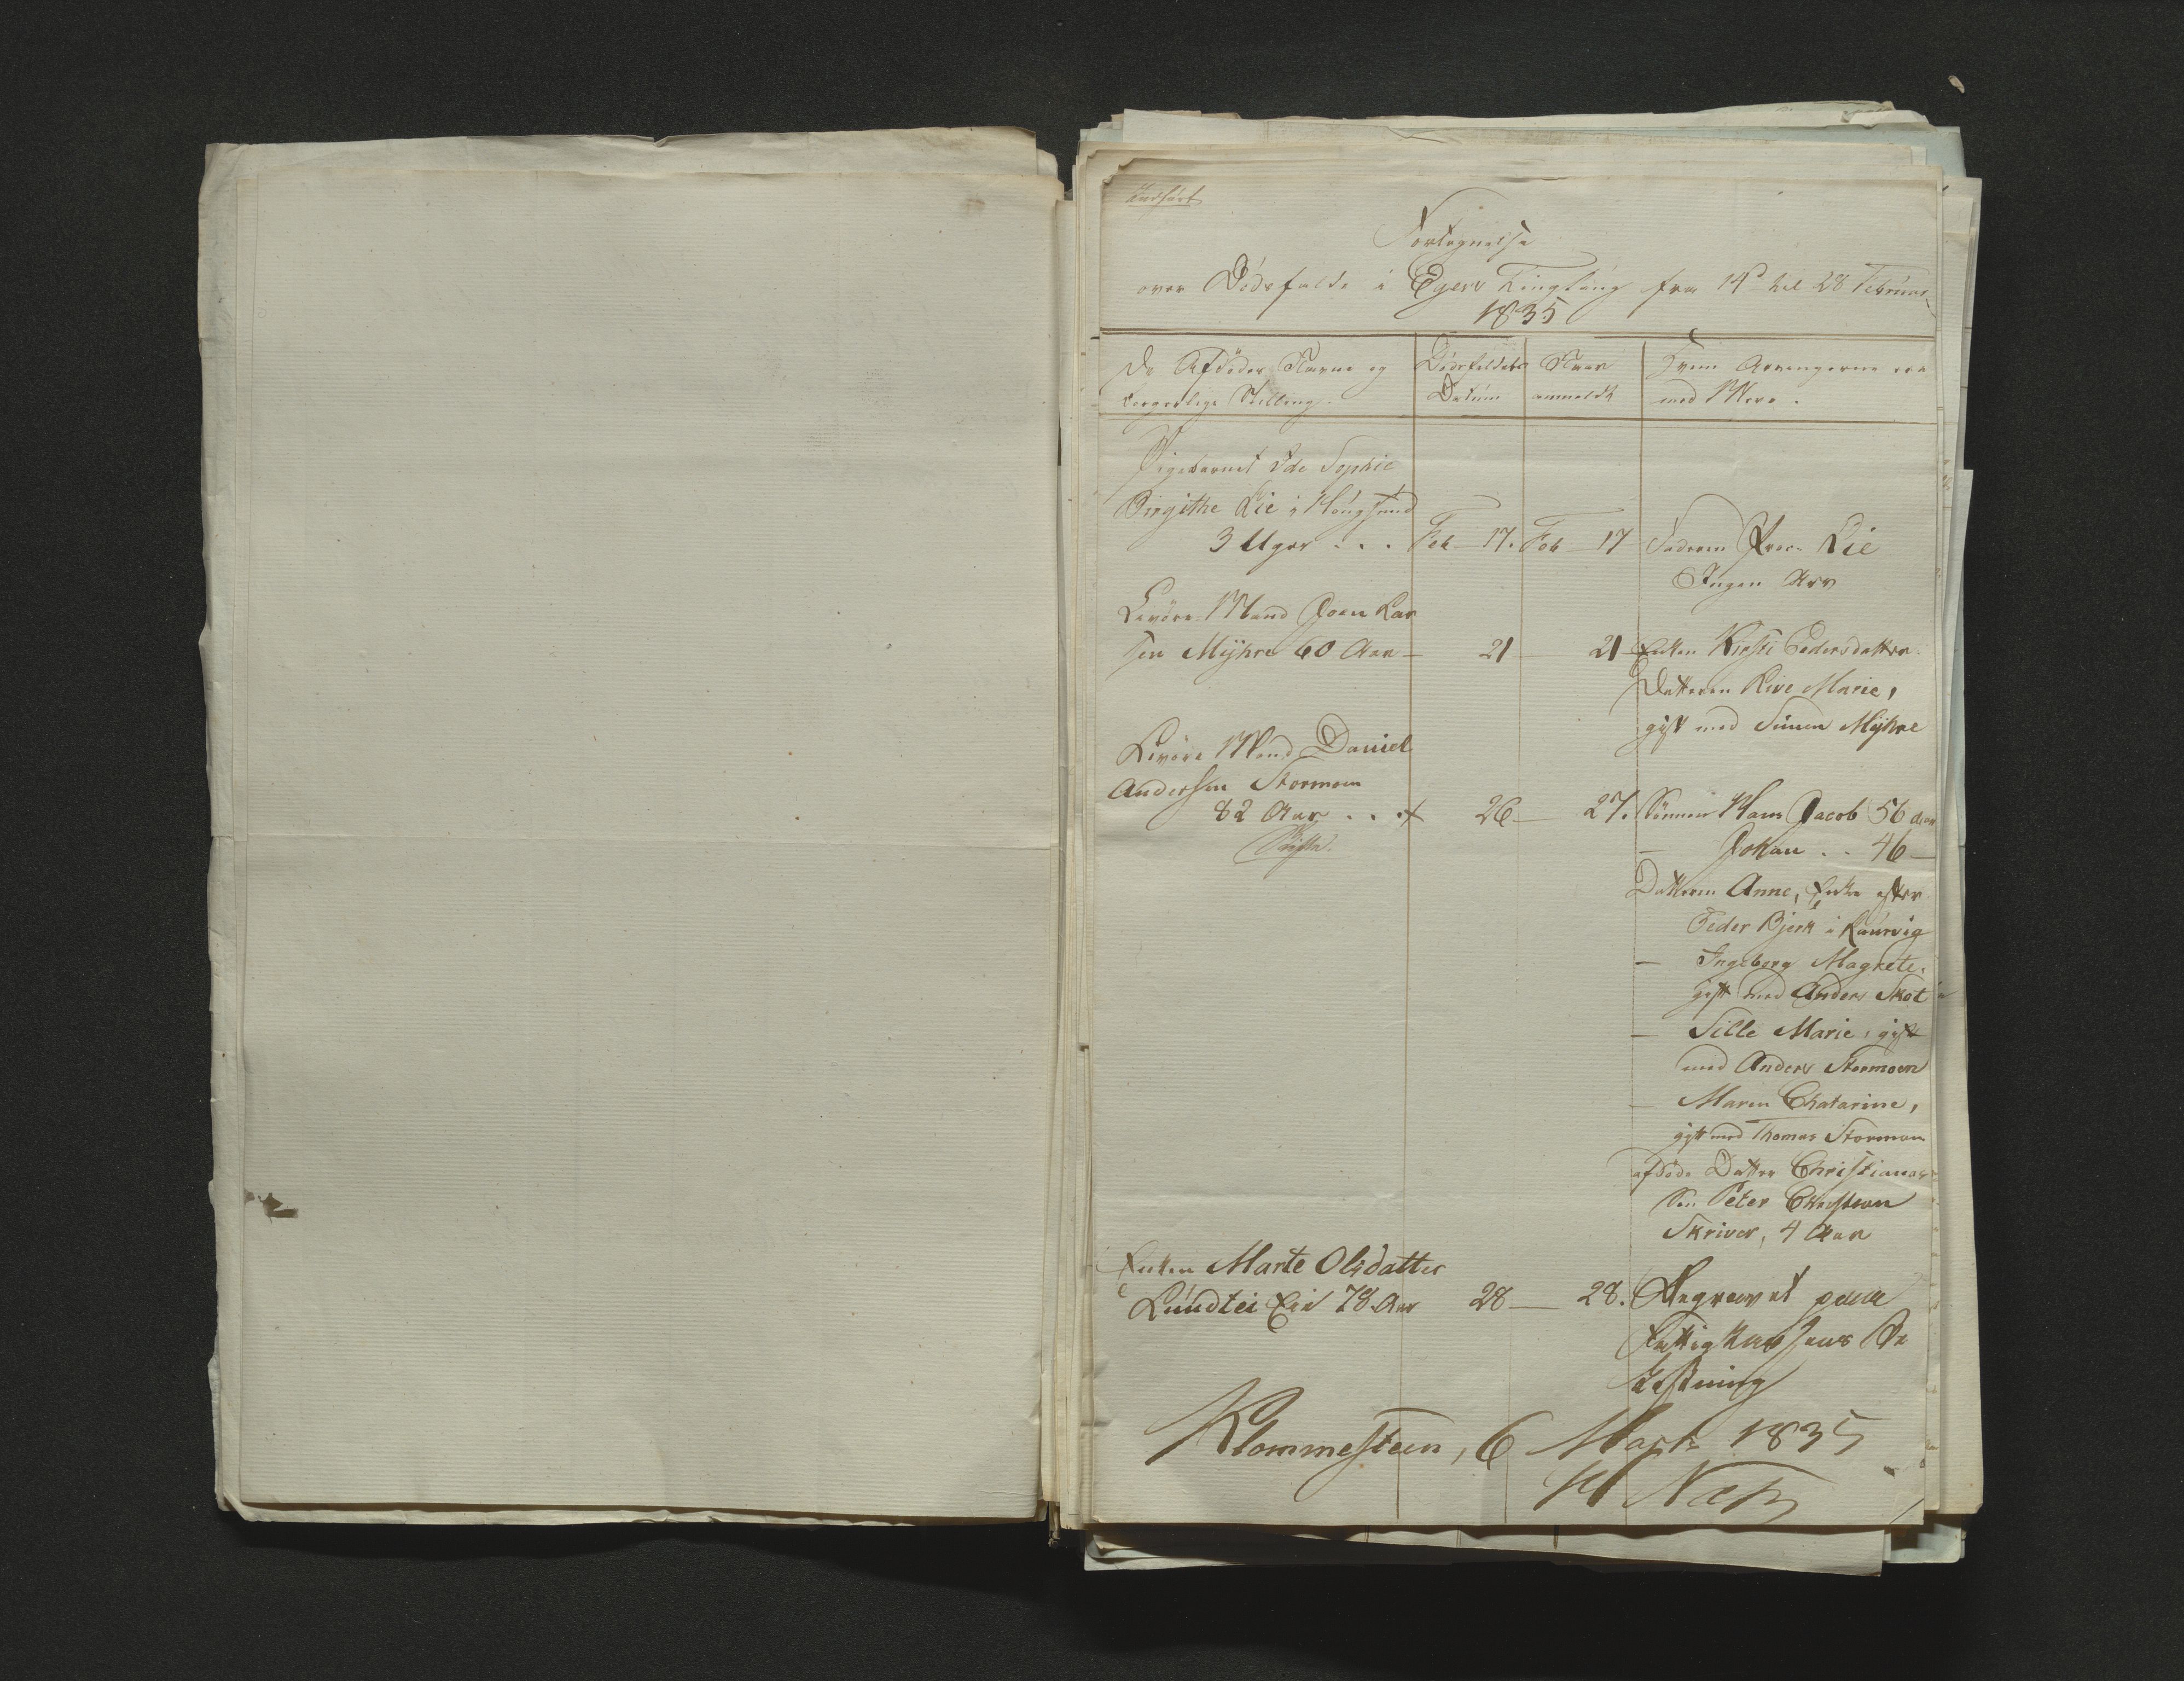 Indført
Fortegnelse
over Dødsfalde i Egers Tinglaug fra 14de til 28 Februar
1835
De Afdødes Navne og
borgerlige Stilling.
Dødsfaldets
Datum
Naar
anmeldt
Hvem Arvingerne ere
med Mere.
Pigebarnet Ide Sophie
Birgithe Lie i Hougsund
3 Uger . . . Feb 17. Feb 17 Faderen Proc. Lie
Ingen Arv
Mand Joen Lar
sen Mÿhre 60 Aar — 21 — 21 Enken Kirsti Pedersdatter.
Datteren Live Marie,
gift med Simen Mÿhre
Mand Daniel
Andersen Stormoen
82 Aar . . . 26 — 27. Sønnen Hans Jacob 56 Aar
— Johan . . 46 —
Datteren Anne, Enke efter
Peder Bjerk i Laurvig
— Ingeborg Magrete,
gift med Anders Skot
— Sille Marie, gift
med Anders Stormoen
— Maren Chatarine,
gift med Thomas Stormoen
afdøde Datter Christianes
Søn Peter Christian
Skriver, 4 Aar
Skifte.
Enken Marte Olsdatter
Lundtei Eie 78 Aar 28 — 28. Begravet paa
Fattigkassens Be
kostning
Klommesteen, 6 Marts 1835
H Næss